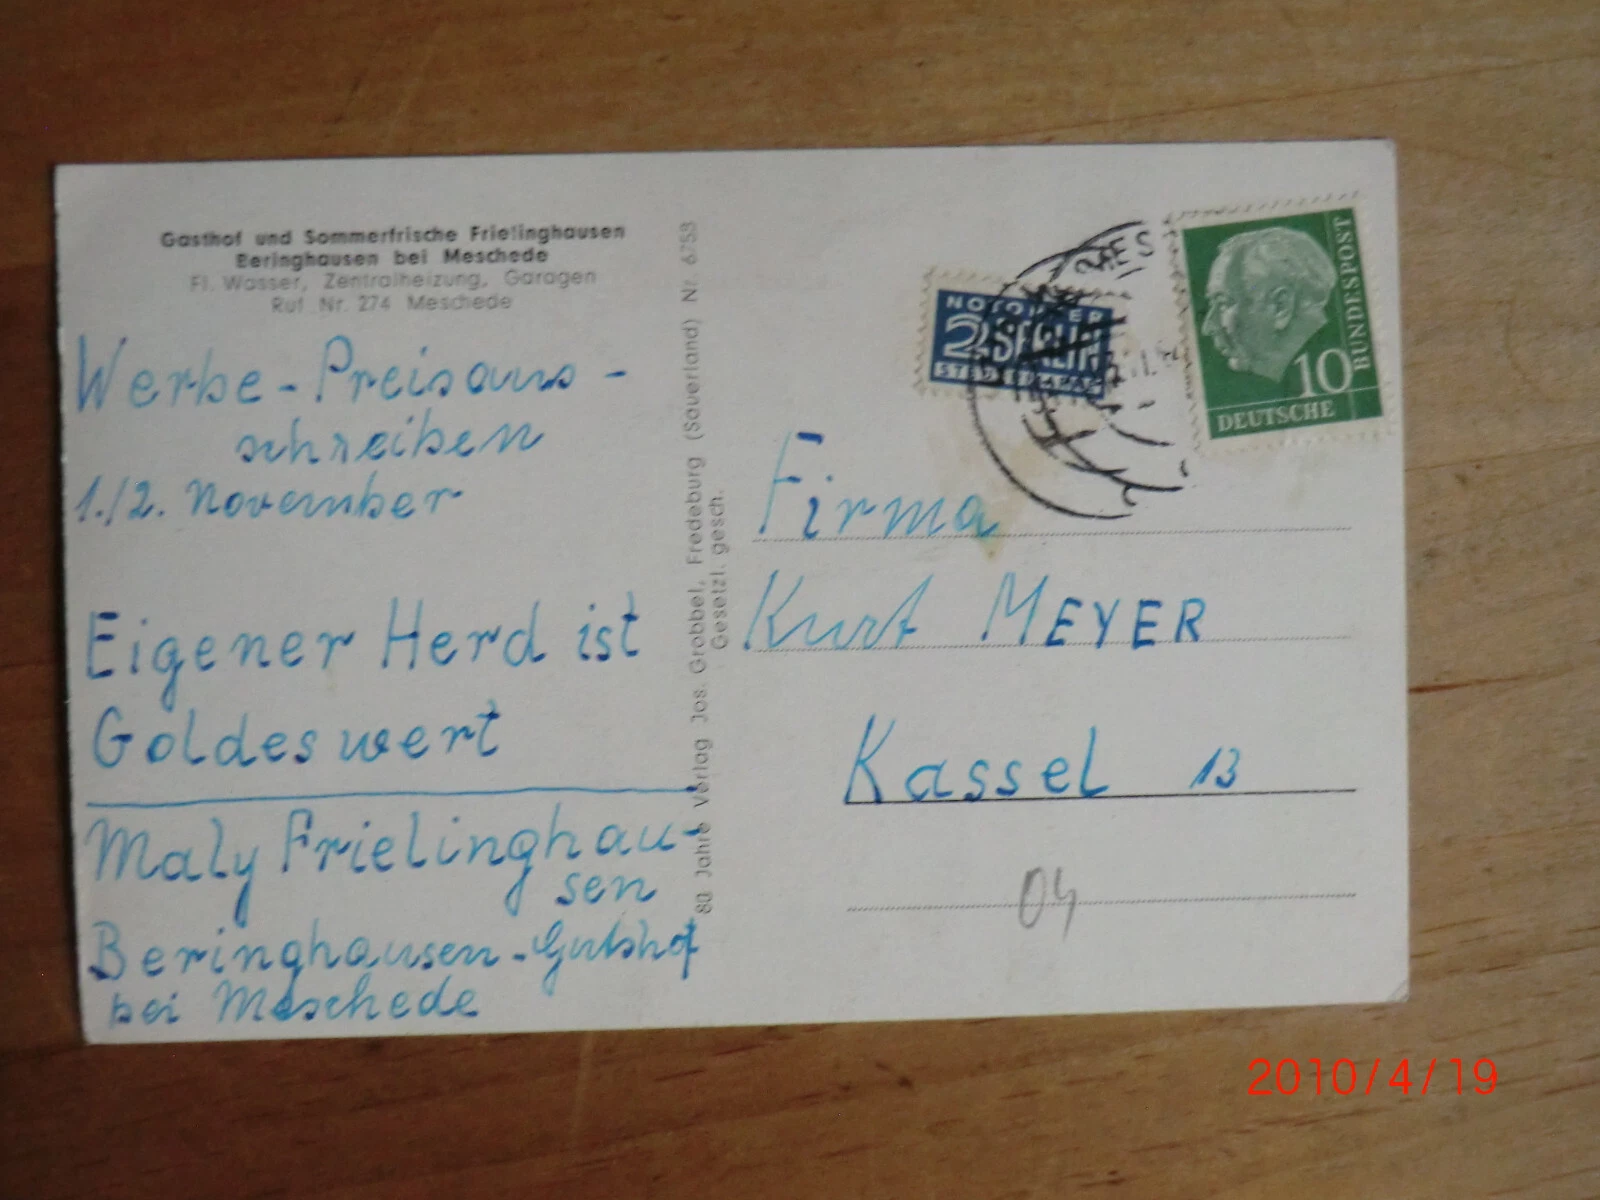 Gasthof und Sommerfrische Frielinghausen
Beringhausen bei Meschede
Fl. Wasser, Zentralheizung, Garagen
Ruf Nr. 274 Meschede
Werbe-Preisaus-
schreiben
1./2. November
Eigener Herd ist
Goldes wert
Maly Frielinghau-
sen
Beringhausen-Gutshof
bei Meschede
80 Jahre Verlag Jos. Grobbel, Fredeburg (Sauerland) Nr. 6753
Gesetzl. gesch.
NOTOPFER
2 BERLIN
STEUERMARKE
MES
10
BUNDESPOST
DEUTSCHE
Firma
Kurt MEYER
Kassel 13
04
2010/4/19